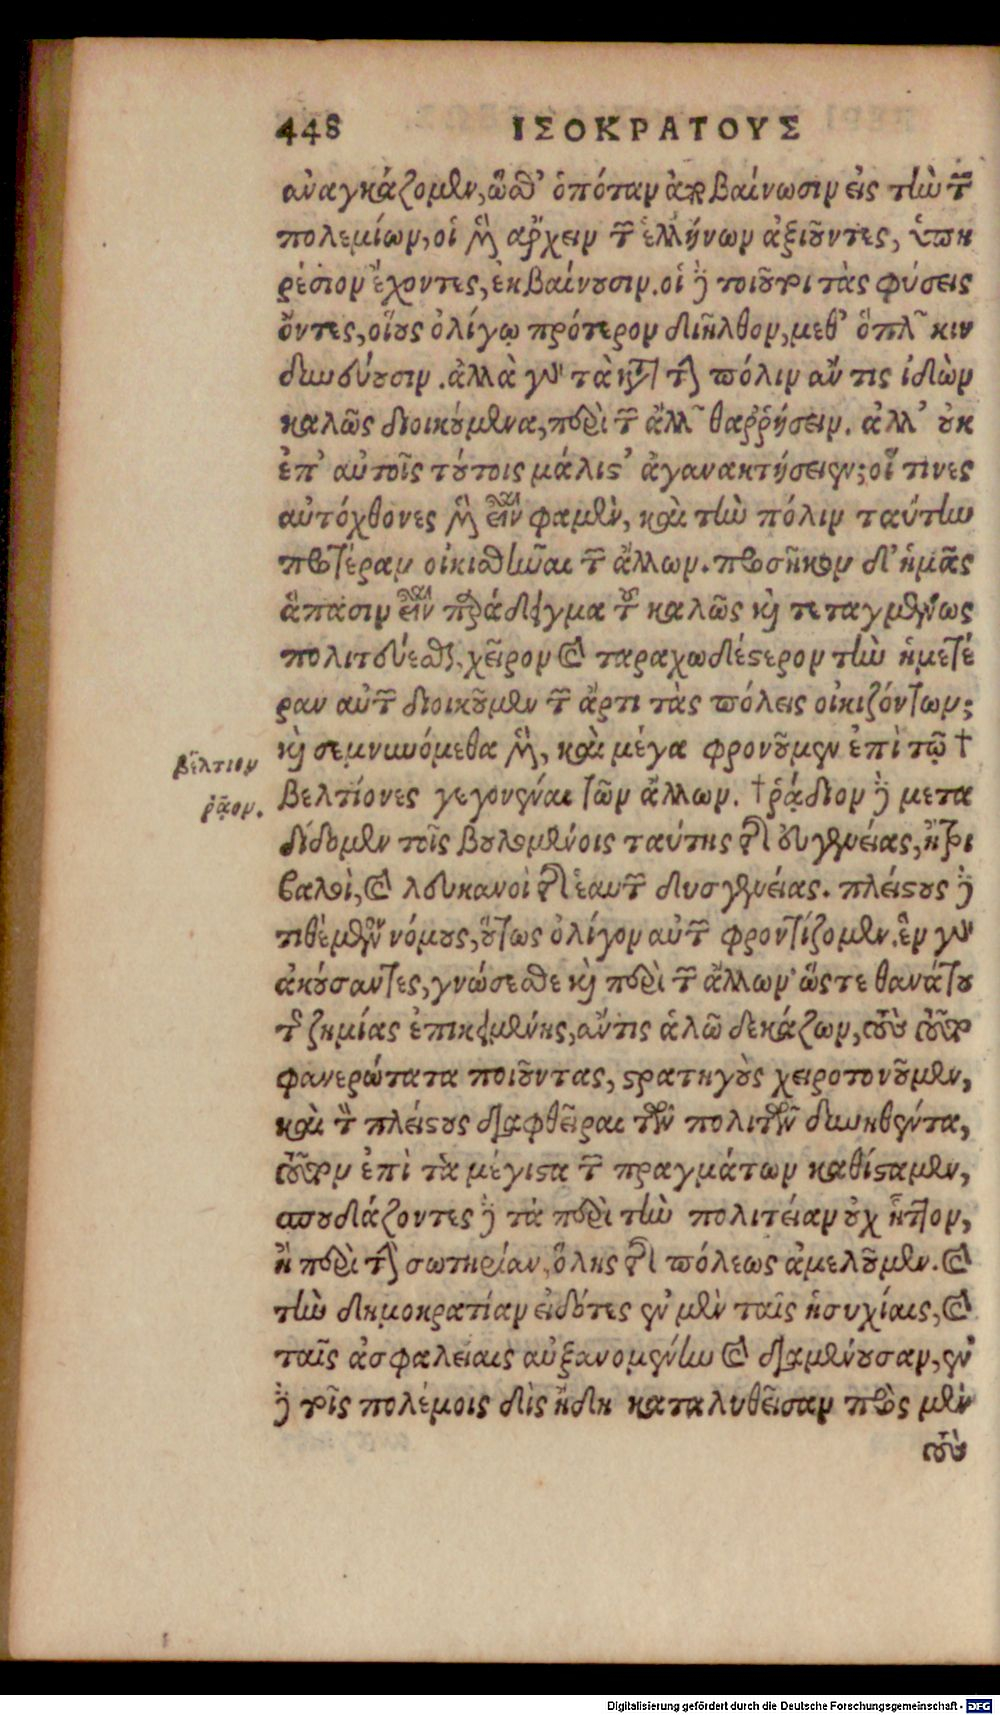 448 ΙΣΟΚΡΑΤΟΥΣ
ἀναγκάζομεν, ὥσθ' ὁπόταν ἀποβαίνωσιν εἰς τὴν τῶν
πολεμίων, οἱ μὲν ἄρχειν τῶν ἑλλήνων ἀξιοῦντες, ὑπη
ρέσιον ἔχοντες, ἐκβαίνουσιν. οἱ δὲ τοιοῦτοι τὰς φύσεις
ὄντες, οἵους ὀλίγῳ πρότερον διῆλθον, μεθ' ὅπλων κιν
δυνεύουσιν. ἀλλὰ γὰρ τὰ κατὰ τὴν πόλιν ἄν τις ἰδὼν
καλῶς διοικούμενα, περὶ τῶν ἄλλων θαῤῥήσειν. ἀλλ' οὐκ
ἐπ' αὐτοῖς τούτοις μάλιστ' ἀγανακτήσειεν; οἵ τινες
αὐτόχθονες μὲν εἶναι φαμὲν, καὶ τὴν πόλιν ταύτην
προτέραν οἰκισθῆναι τῶν ἄλλων. προσῆκον δ' ἡμᾶς
ἅπασιν εἶναι παράδειγμα τοῦ καλῶς καὶ τεταγμένως
πολιτεύεσθαι, χεῖρον καὶ ταραχωδέστερον τὴν ἡμετέ
ραν αὐτῶν διοικοῦμεν τῶν ἄρτι τὰς πόλεις οἰκιζόντων;
καὶ σεμνυνόμεθα μὲν, καὶ μέγα φρονοῦμεν ἐπὶ τῷ †
βέλτιον
βελτίονες γεγονέναι τῶν ἄλλων. † ῥᾴδιον δὲ μετα
ῥᾷον.
δίδομεν τοῖς βουλομένοις ταύτης τῆς εὐγενείας, ἢ τρι
βαλοὶ, καὶ λευκανοὶ τῆς ἑαυτῶν δυσγενείας. πλείστους δὲ
τιθέμενοι νόμους, οὕτως ὀλίγον αὐτῶν φροντίζομεν. ἓν γὰρ
ἀκούσαντες, γνώσεσθε καὶ περὶ τῶν ἄλλων· ὥστε θανάτου
τῆς ζημίας ἐπικειμένης, ἄν τις ἁλῷ δεκάζων, τοὺς τοῦτο
φανερώτατα ποιοῦντας, στρατηγοὺς χειροτονοῦμεν,
καὶ τὸν πλείστους διαφθεῖραι τῶν πολιτῶν δυνηθέντα,
τοῦτον ἐπὶ τὰ μέγιστα τῶν πραγμάτων καθίσταμεν,
σπουδάζοντες δὲ τὰ περὶ τὴν πολιτείαν οὐχ ἧττον,
ἢ περὶ τὴν σωτηρίαν, ὅλης τῆς πόλεως ἀμελοῦμεν. καὶ
τὴν δημοκρατίαν εἰδότες ἐν μὲν ταῖς ἡσυχίαις, καὶ
ταῖς ἀσφαλείαις αὐξανομένην καὶ διαμένουσαν, ἐν
δὲ τοῖς πολέμοις δὶς ἤδη καταλυθεῖσαν πρὸς μὲν
τοὺς
Digitalisierung gefördert durch die Deutsche Forschungsgemeinschaft - DFG